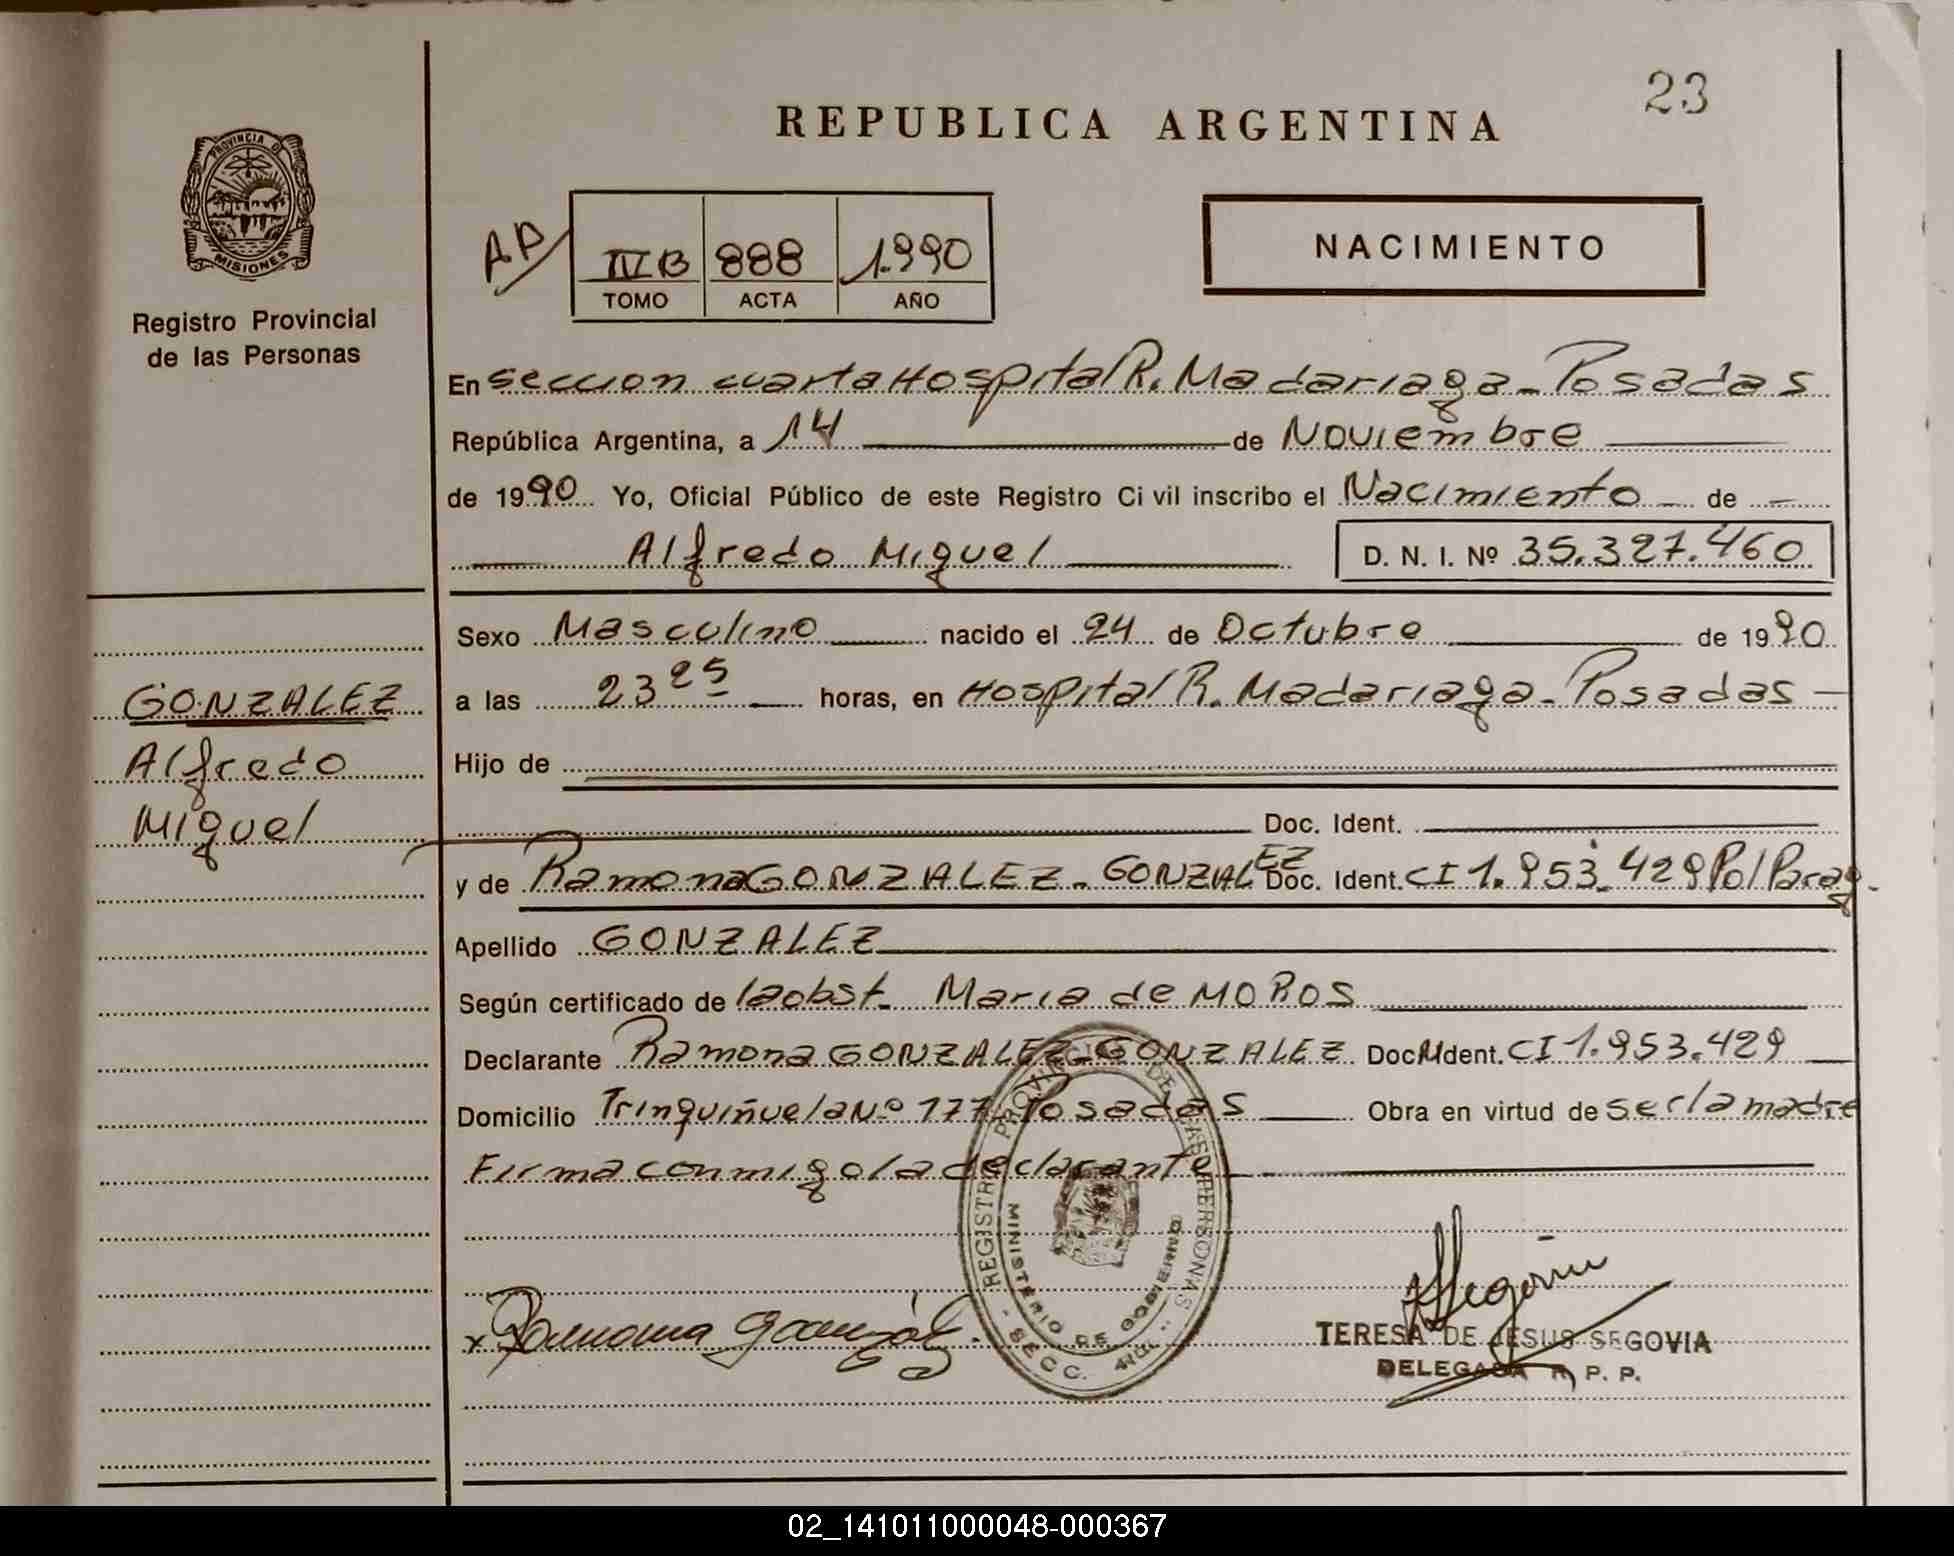 23
REPUBLICA ARGENTINA
PROVINCIA D
MISIONES
Registro Provincial
de las Personas
AP/
IVB 888 1.990
TOMO ACTA AÑO
NACIMIENTO
En seccion cuarta Hospital R. Madariaga - Posadas
República Argentina, a 14 de Noviembre
de 1990 Yo, Oficial Público de este Registro Civil inscribo el Nacimiento de
Alfredo Miguel D. N. I. Nº 35.327.460
Sexo Masculino nacido el 24 de Octubre de 1990
a las 23 25 horas, en Hospital R. Madariaga - Posadas
Hijo de
Doc. Ident.
y de Ramona GONZALEZ - GONZALEZ Doc. Ident. CI 1.953.429 Pol Parag.
Apellido GONZALEZ
Según certificado de la obst. Maria de MOROS
Declarante Ramona GONZALEZ - GONZALEZ Doc. Ident. CI 1.953.429
Domicilio Trinquiñuela Nº 177 Posadas Obra en virtud de ser la madre
Firma conmigo la declarante
GONZALEZ
Alfredo
Miguel
REGISTRO PROVINCIAL DE LAS PERSONAS
MINISTERIO DE GOBIERNO
- SECC. 4TA. -
x Ramona González.
TERESA DE JESUS SEGOVIA
DELEGADA R. P. P.
02_141011000048-000367